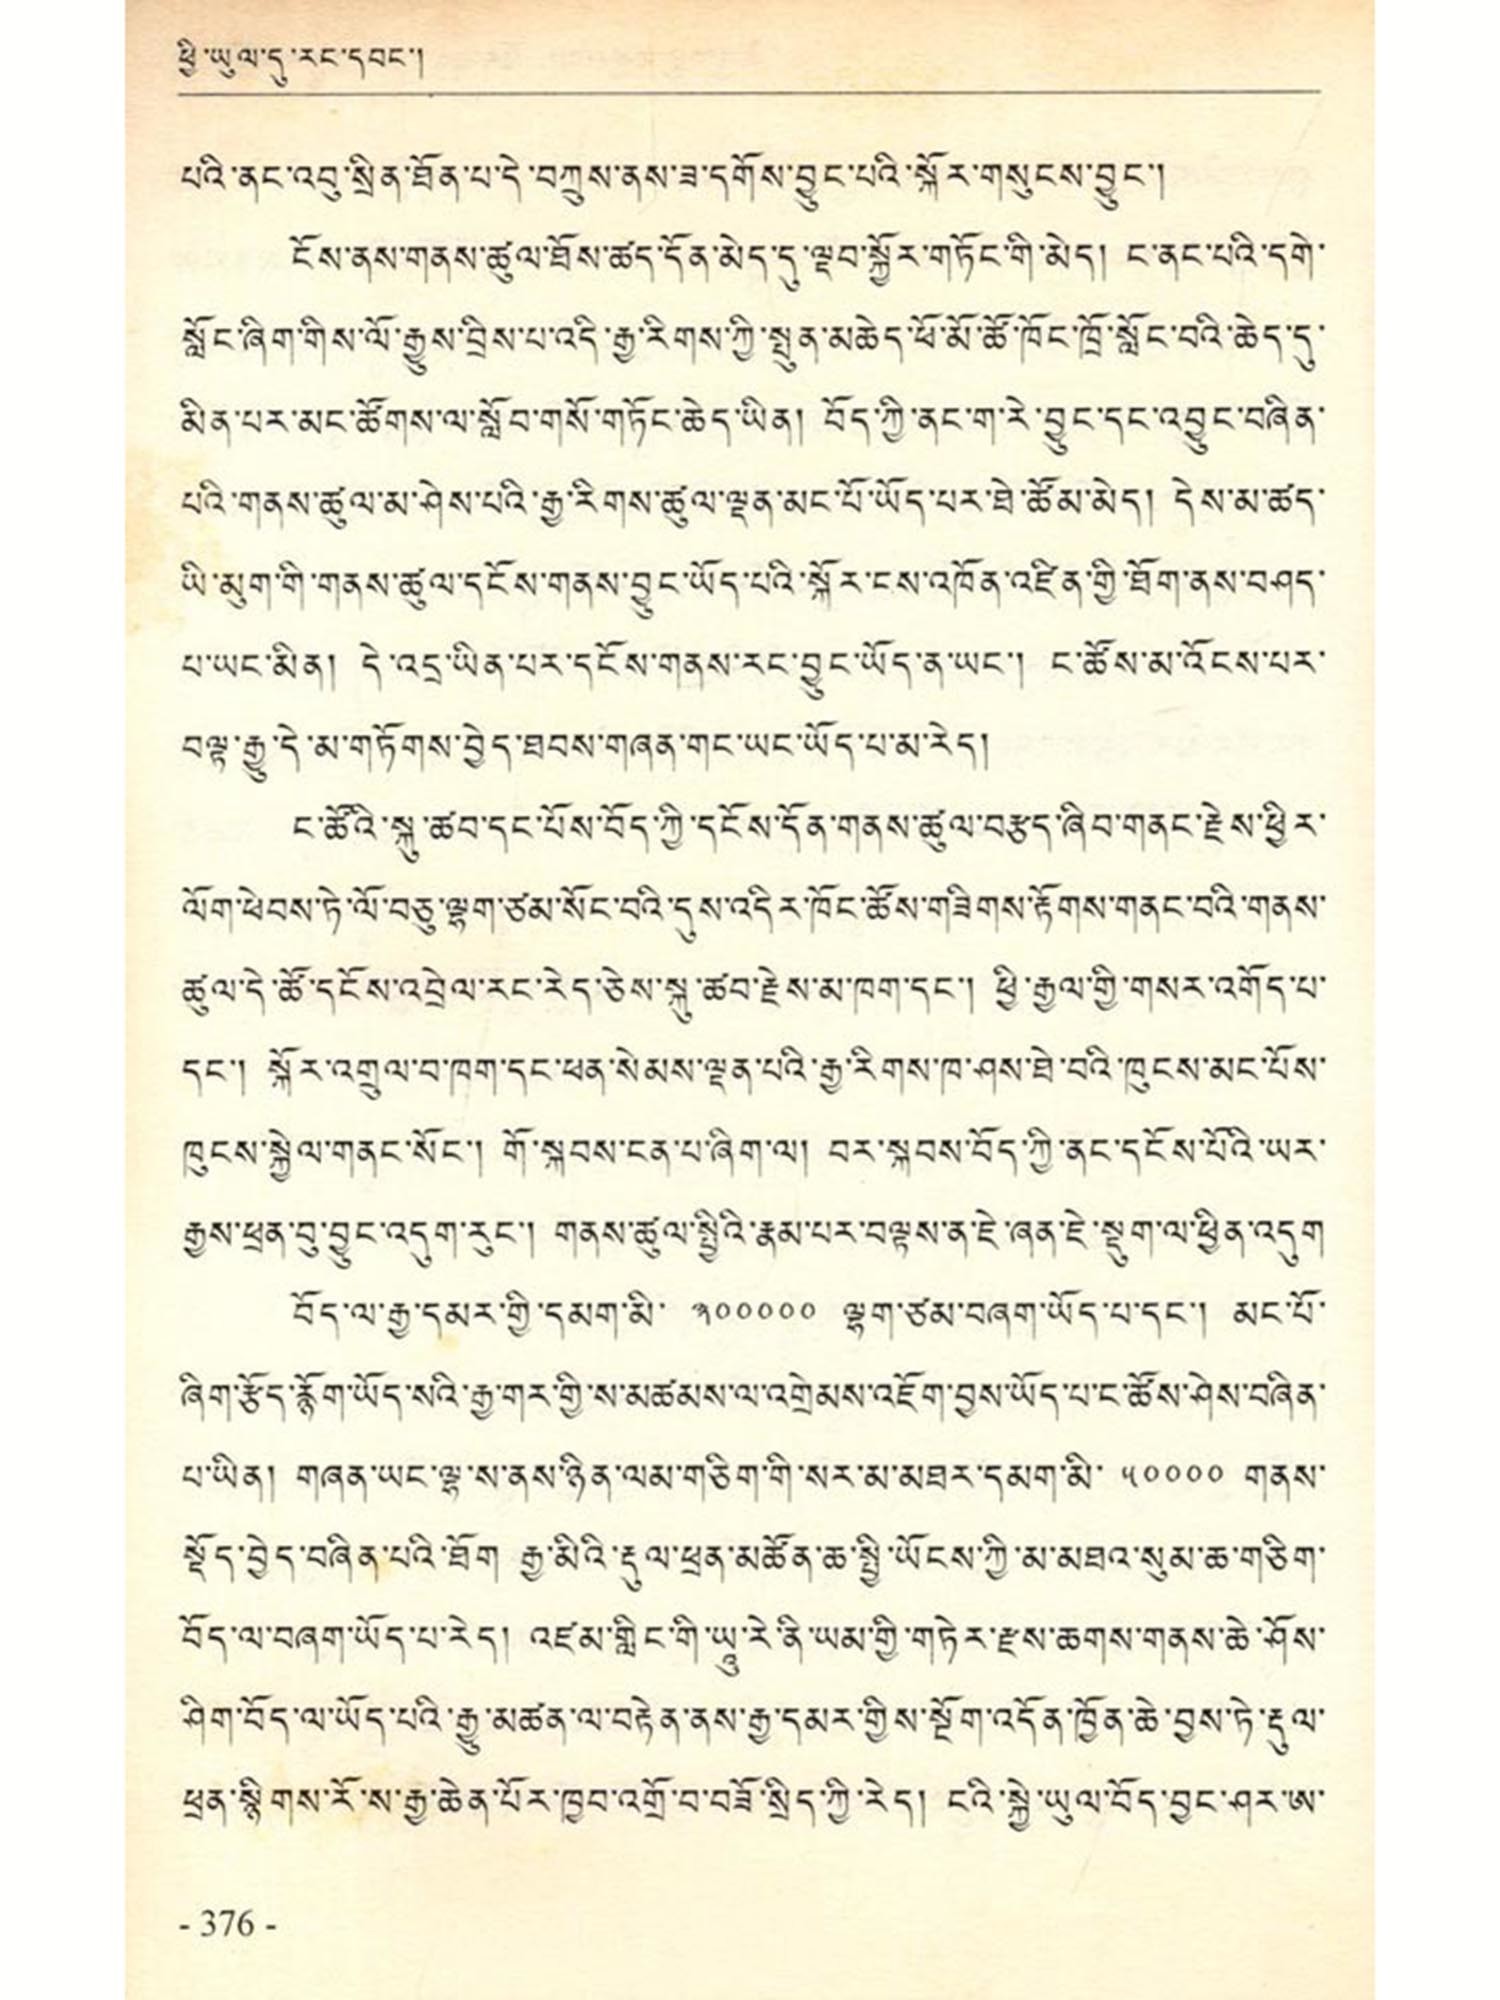 ཕྱི་ཡུལ་དུ་རང་དབང་།
པའི་ནང་འབུ་སྲིན་ཐོན་པ་དེ་བཀྲུས་ནས་ཟ་དགོས་བྱུང་པའི་སྐོར་གསུངས་བྱུང་།
ངོས་ནས་གནས་ཚུལ་ཐོས་ཚད་དོན་མེད་དུ་ལྡབ་སྐྱོར་གཏོང་གི་མེད། ང་ནང་པའི་དགེ་
སློང་ཞིག་གིས་ལོ་རྒྱུས་བྲིས་པ་འདི་རྒྱ་རིགས་ཀྱི་སྤུན་མཆེད་ཕོ་མོ་ཚོ་ཁོང་ཁྲོ་སློང་བའི་ཆེད་དུ་
མིན་པར་མང་ཚོགས་ལ་སློབ་གསོ་གཏོང་ཆེད་ཡིན། བོད་ཀྱི་ནང་ག་རེ་བྱུང་དང་འབྱུང་བཞིན་
པའི་གནས་ཚུལ་མ་ཤེས་པའི་རྒྱ་རིགས་ཚུལ་ལྡན་མང་པོ་ཡོད་པར་ཐེ་ཚོམ་མེད། དེས་མ་ཚད་
ཡི་མུག་གི་གནས་ཚུལ་དངོས་གནས་བྱུང་ཡོད་པའི་སྐོར་ངས་འཁོན་འཛིན་གྱི་ཐོག་ནས་བཤད་
པ་ཡང་མིན། དེ་འདྲ་ཡིན་པར་དངོས་གནས་རང་བྱུང་ཡོད་ན་ཡང་། ང་ཚོས་མ་འོངས་པར་
བལྟ་རྒྱུ་དེ་མ་གཏོགས་བྱེད་ཐབས་གཞན་གང་ཡང་ཡོད་པ་མ་རེད།
ང་ཚོའི་སྐུ་ཚབ་དང་པོས་བོད་ཀྱི་དངོས་དོན་གནས་ཚུལ་བརྩད་ཞིབ་གནང་རྗེས་ཕྱིར་
ལོག་ཕེབས་ཏེ་ལོ་བཅུ་ལྷག་ཙམ་སོང་བའི་དུས་འདིར་ཁོང་ཚོས་གཟིགས་རྟོགས་གནང་བའི་གནས་
ཚུལ་དེ་ཚོ་དངོས་འབྲེལ་རང་རེད་ཅེས་སྐུ་ཚབ་རྗེས་མ་ཁག་དང་། ཕྱི་རྒྱལ་གྱི་གསར་འགོད་པ་
དང་། སྐོར་འགྲུལ་བ་ཁག་དང་ཕན་སེམས་ལྡན་པའི་རྒྱ་རིགས་ཁ་ཤས་ཐེ་བའི་ཁུངས་མང་པོས་
ཁུངས་སྐྱེལ་གནང་སོང་། གོ་སྐབས་ངན་པ་ཞིག་ལ། བར་སྐབས་བོད་ཀྱི་ནང་དངོས་པོའི་ཡར་
རྒྱས་ཕྲན་བུ་བྱུང་འདུག་རུང་། གནས་ཚུལ་སྤྱིའི་རྣམ་པར་བལྟས་ན་ཇེ་ཞན་ཇེ་སྡུག་ལ་ཕྱིན་འདུག
བོད་ལ་རྒྱ་དམར་གྱི་དམག་མི་ ༣༠༠༠༠༠ ལྷག་ཙམ་བཞག་ཡོད་པ་དང་། མང་པོ་
ཞིག་རྩོད་རྙོག་ཡོད་སའི་རྒྱ་གར་གྱི་ས་མཚམས་ལ་འགྲེམས་འཇོག་བྱས་ཡོད་པ་ང་ཚོས་ཤེས་བཞིན་
པ་ཡིན། གཞན་ཡང་ལྷ་ས་ནས་ཉིན་ལམ་གཅིག་གི་སར་མ་མཐར་དམག་མི་ ༥༠༠༠༠ གནས་
སྡོད་བྱེད་བཞིན་པའི་ཐོག རྒྱ་མིའི་རྡུལ་ཕྲན་མཚོན་ཆ་སྤྱི་ཡོངས་ཀྱི་མ་མཐའ་སུམ་ཆ་གཅིག་
བོད་ལ་བཞག་ཡོད་པ་རེད། འཛམ་གླིང་གི་ཡུ་རེ་ནི་ཡམ་གྱི་གཏེར་རྫས་ཆགས་གནས་ཆེ་ཤོས་
ཤིག་བོད་ལ་ཡོད་པའི་རྒྱུ་མཚན་ལ་བརྟེན་ནས་རྒྱ་དམར་གྱིས་སྔོག་འདོན་ཁྱོན་ཆེ་བྱས་ཏེ་རྡུལ་
ཕྲན་སྙིགས་རོ་ས་རྒྱ་ཆེན་པོར་ཁྱབ་འགྲོ་བ་བཟོ་སྲིད་ཀྱི་རེད། ངའི་སྐྱེ་ཡུལ་བོད་བྱང་ཤར་ཨ་
- 376 -